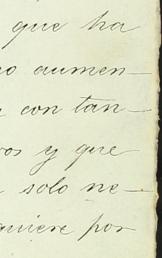 que ha
aumen-
con tan-
y que
solo ne-
quiere por